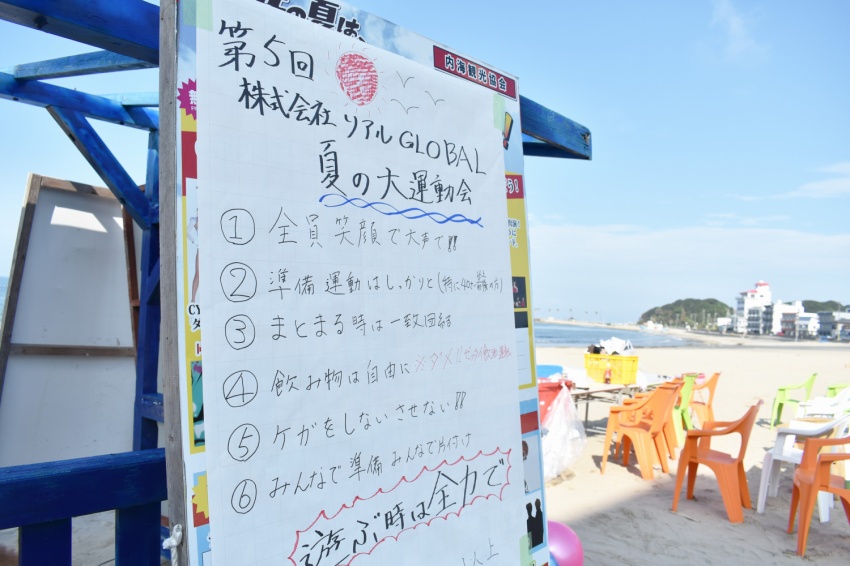 の夏は、
内海観光協会
第5回
株式会社リアルGLOBAL
夏の大運動会
① 全員笑顔で大声で!!
② 準備運動はしっかりと(特に40才の方)
③ まとまる時は一致団結
④ 飲み物は自由に ※ダメ!!
⑤ ケガをしないさせない!!
⑥ みんなで準備みんなで片付け
遊ぶ時は全力で
以上